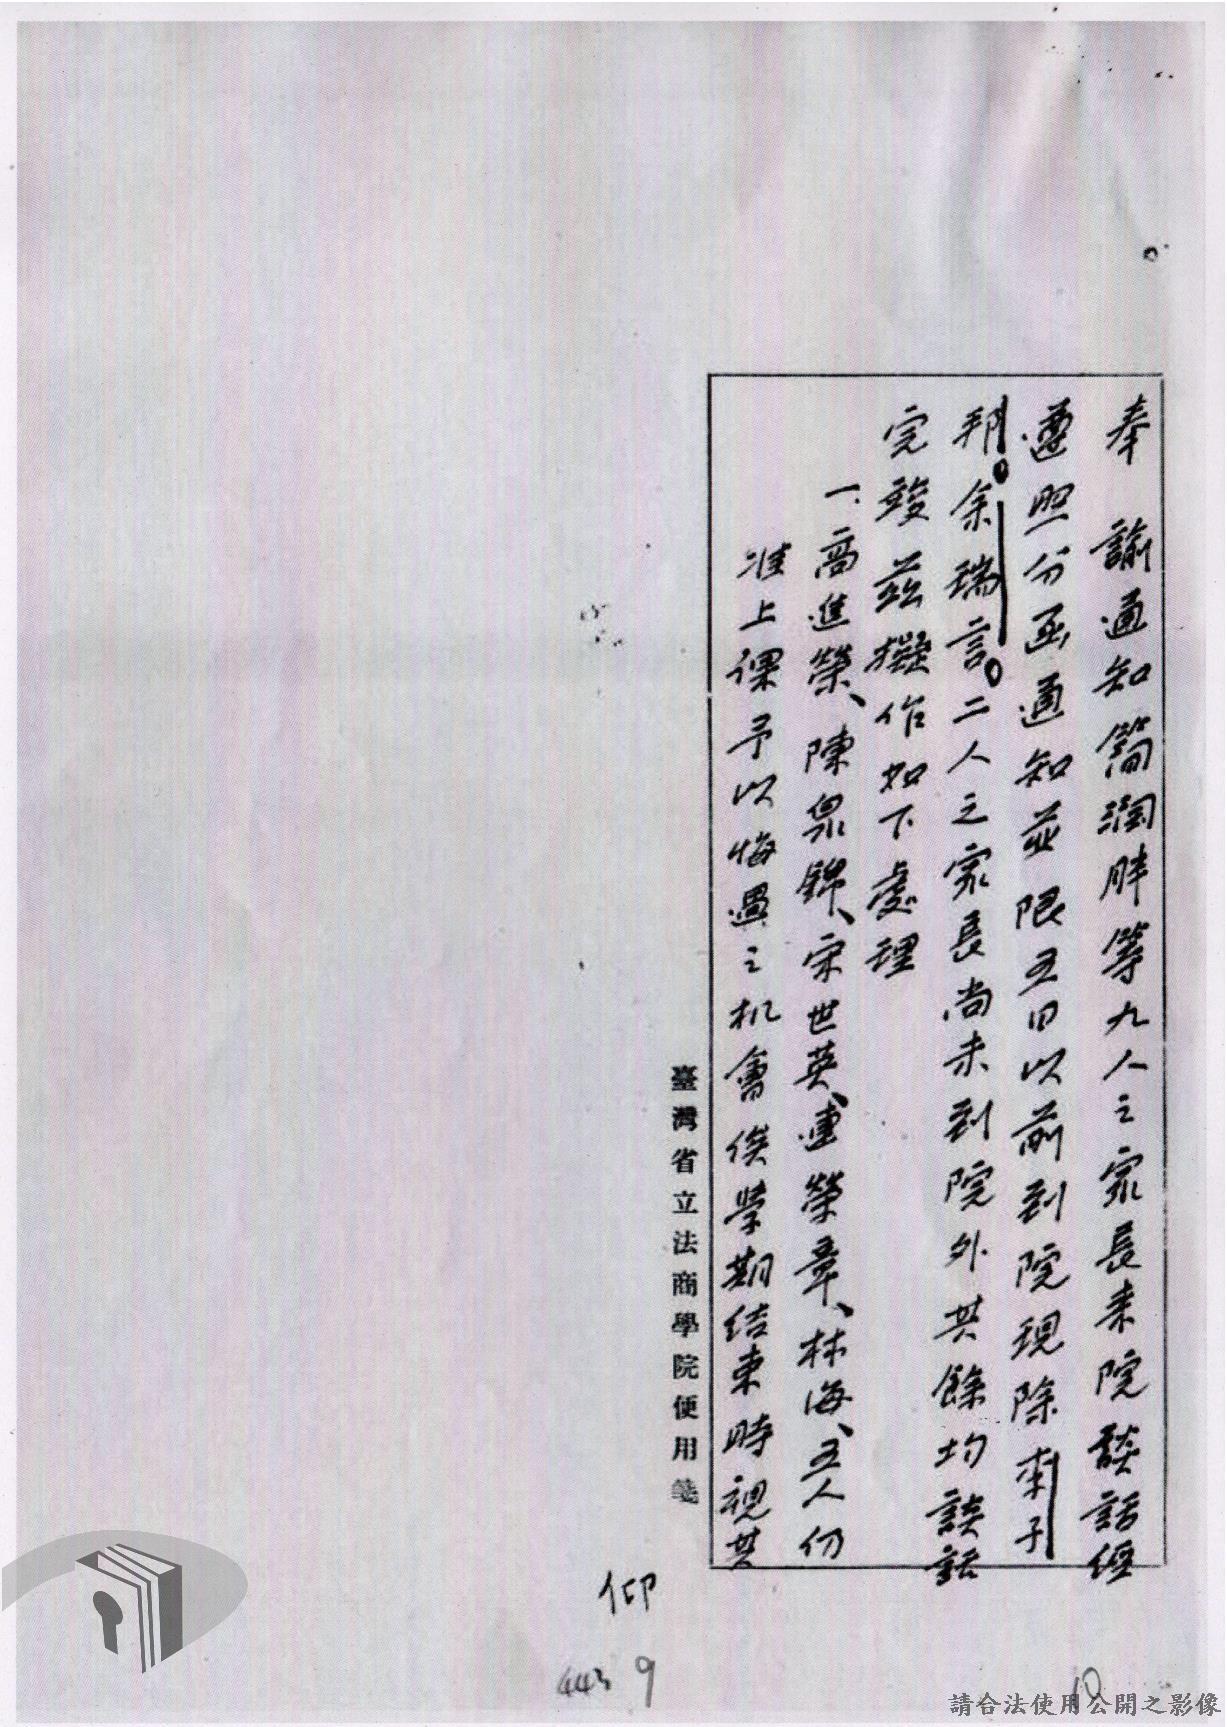 奉　諭通知簡潤胖等九人之家長来院談話經
遵照分函通知並限五日以前到院現除李子
邦。余瑞言。二人之家長尚未到院外其餘均談話
完竣茲擬作如下處理
一、高進榮、陳泉錦、宋世英、連榮章、林海、五人仍
准上課予以悔過之机會俟學期结束時視其
臺灣省立法商學院便用箋
仰
443 9
10
請合法使用公開之影像